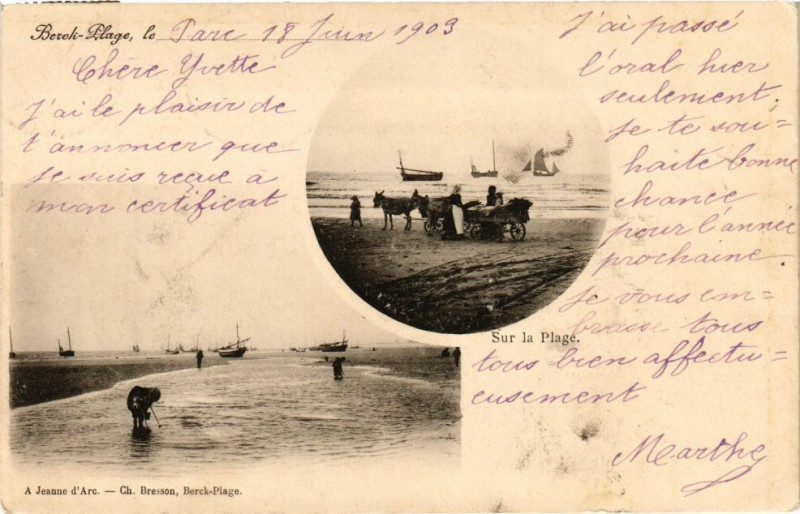 Berck-Plage, le Parc 18 Juin 1903
Chère Yvette
J'ai le plaisir de
t'annoncer que
je suis reçue à
mon certificat
J'ai passé
l'oral hier
seulement,
je te sou=
haite bonne
chance
pour l'année
prochaine
Je vous em=
brasse tous
tous bien affectu=
eusement
Marthe
Sur la Plage.
A Jeanne d'Arc. — Ch. Bresson, Berck-Plage.